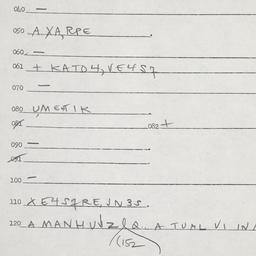 040 —
050 A.YA,RPE .
060 —
061 + KATO4,VE4S7
070 —
080 UMEAIK
081 082 +
090 —
091
100 —
110 XE4S7RE,JN3S.
120 A MANHUVZLQ.. A TUAL VI IN
(152